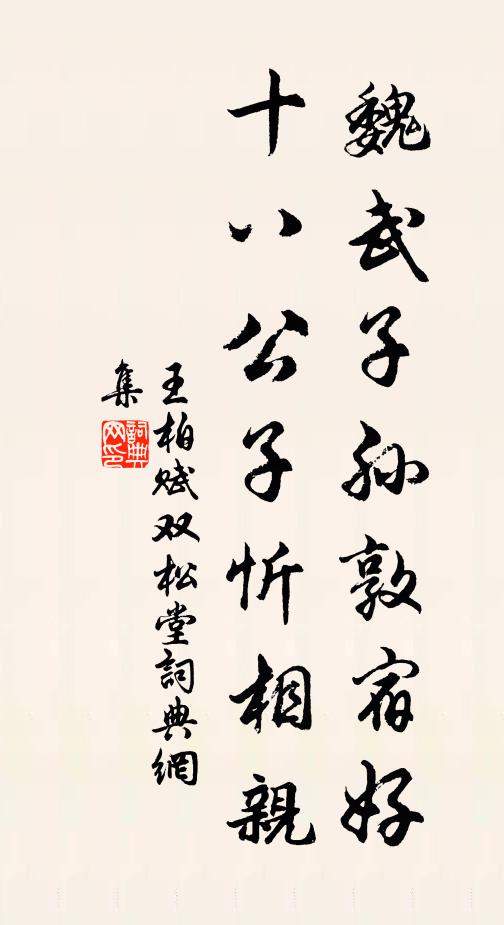 魏武子孙敦宿好
十八公子忻相親
王柏赋双松堂詞典網
集
詞典网印